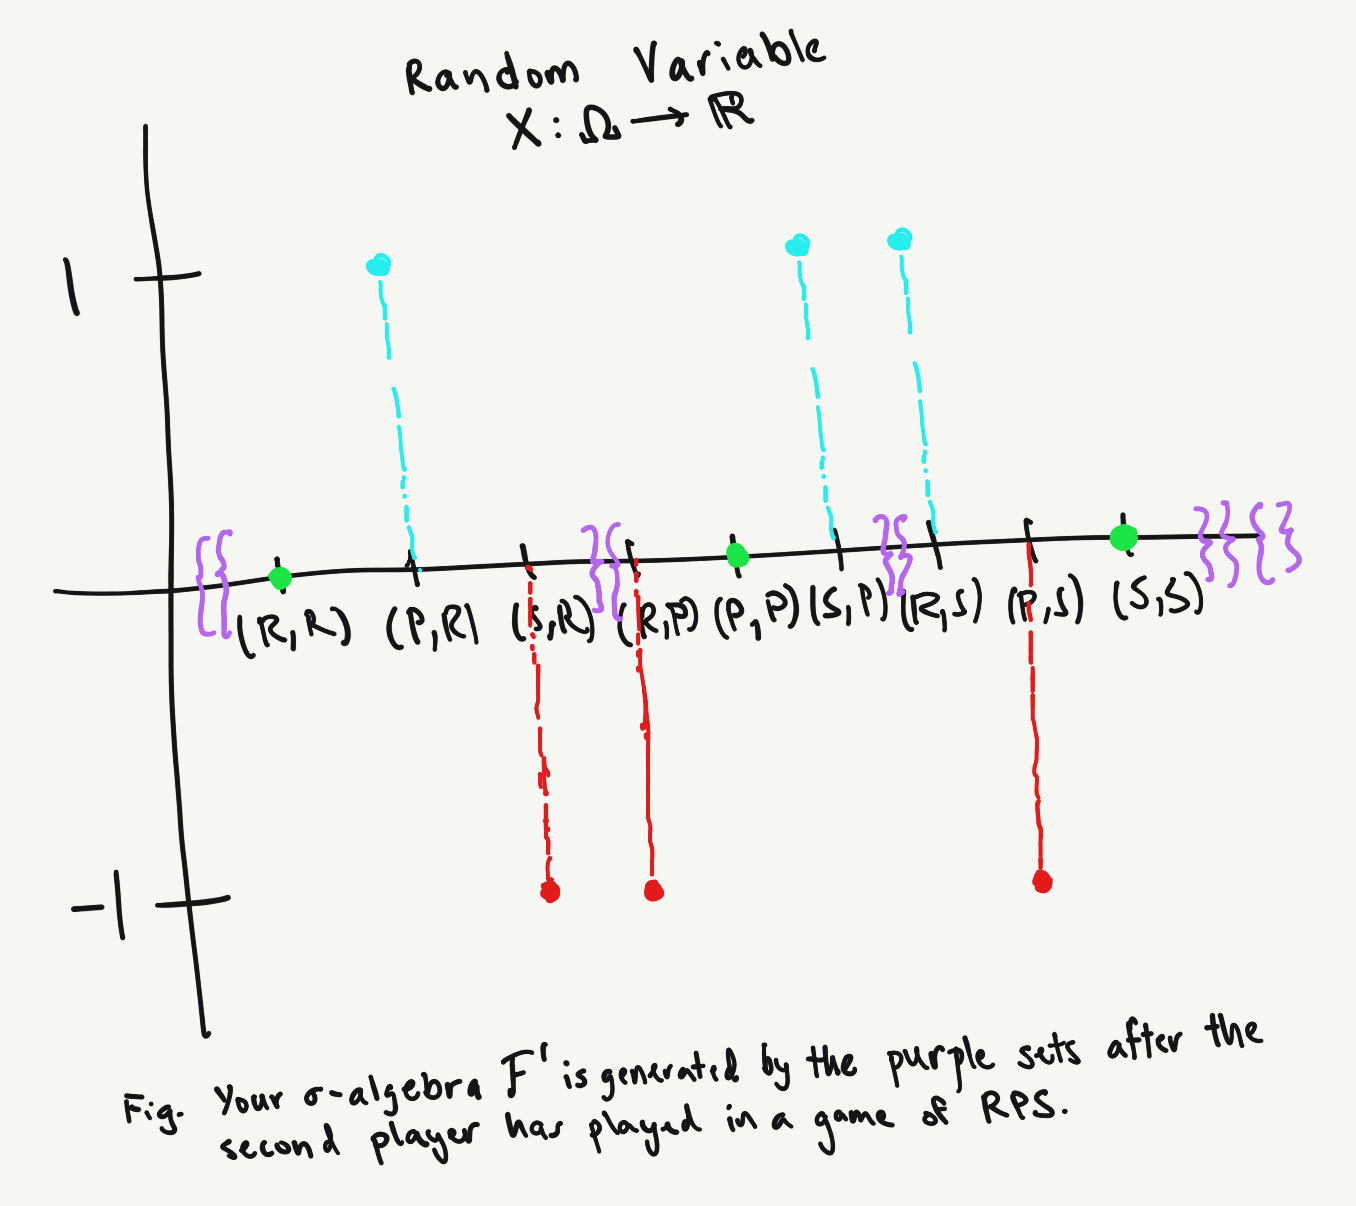 Random Variable
X : Ω → ℝ
1
{{ }{ }{ }}{{
(R,R) (P,R) (S,R) (R,P) (P,P) (S,P) (R,S) (P,S) (S,S)
-1
Fig. Your σ-algebra F' is generated by the purple sets after the
second player has played in a game of RPS.